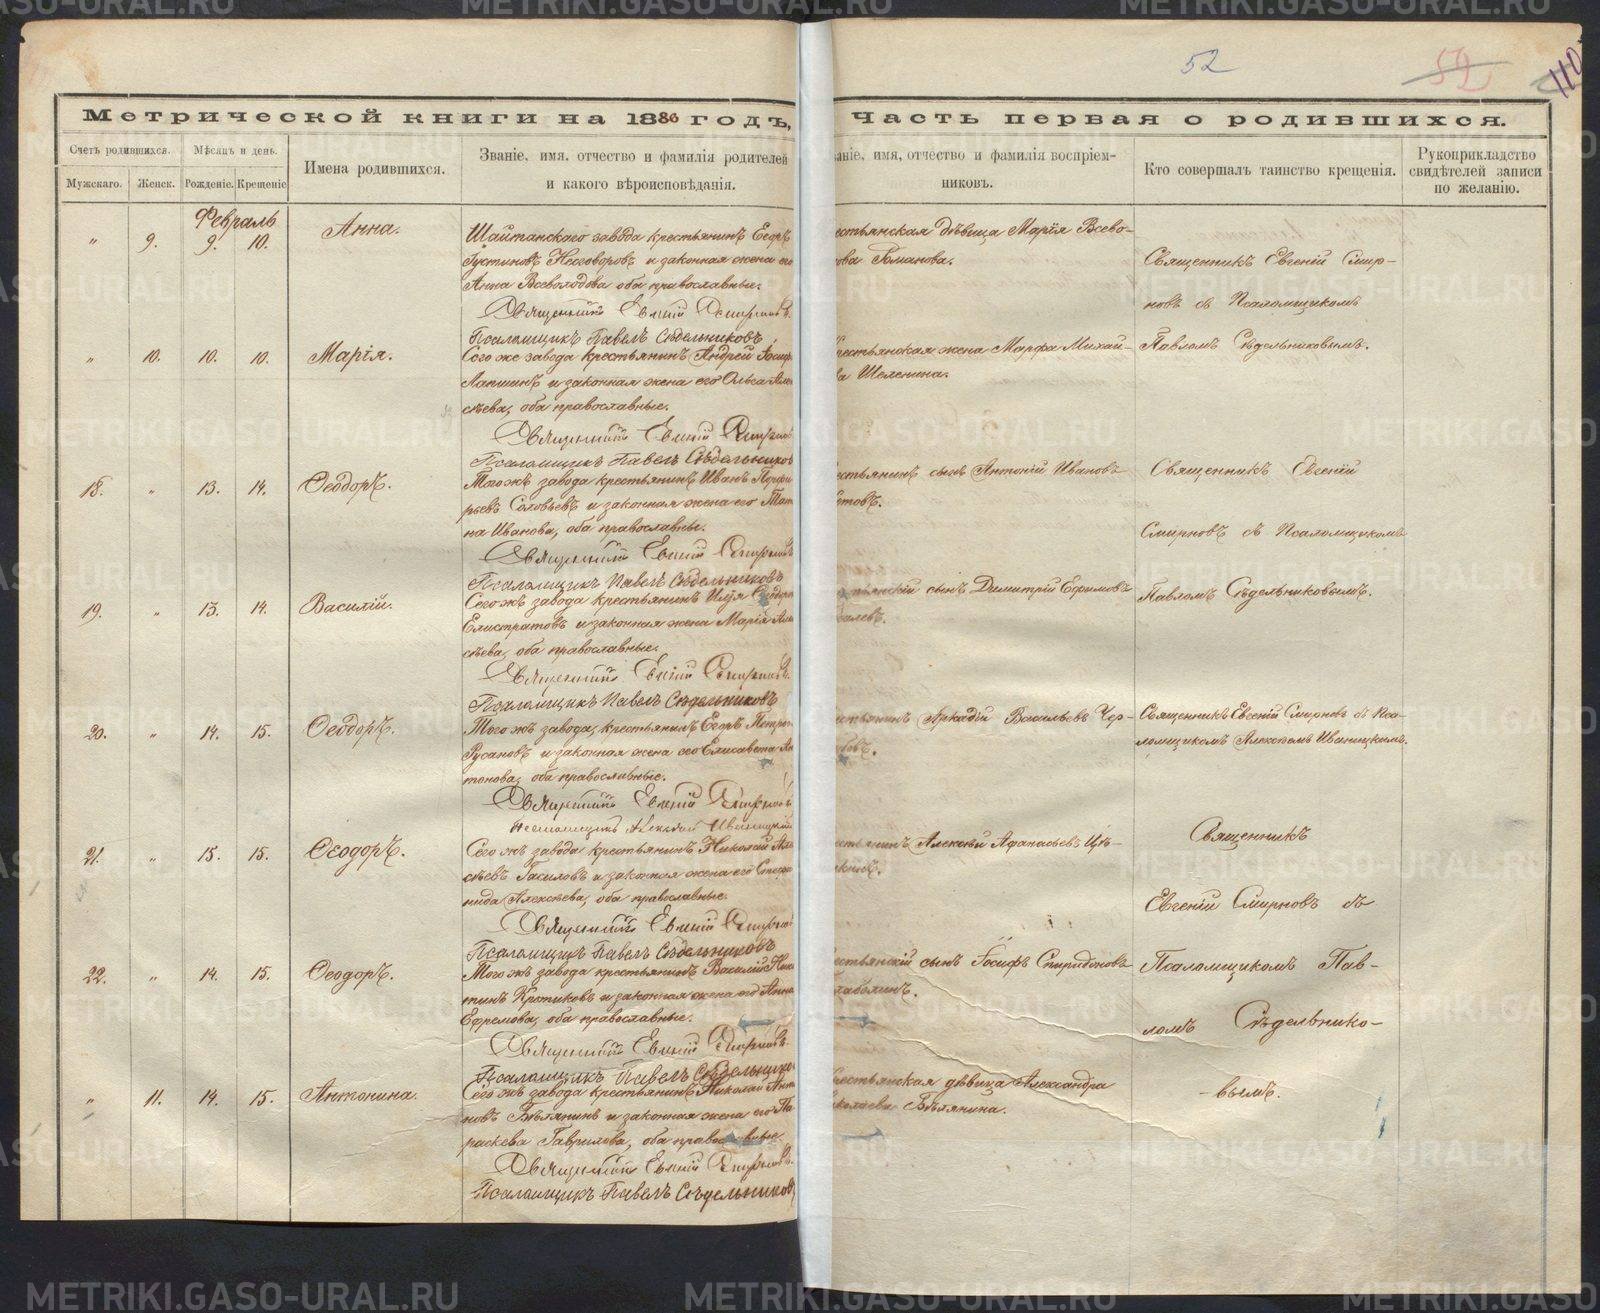 METRIKI.GASO-URAL.RU
52
52
110
Метрической книги на 1886 годъ,
Часть первая о родившихся.
Счетъ родившихся.
Мѣсяцъ и день.
Имена родившихся.
Званіе, имя, отчество и фамилія родителей
и какого вѣроисповѣданія.
Мужскаго.
Женск.
Рожденіе.
Крещеніе
аніе, имя, отчество и фамилія воспріем-
никовъ.
Кто совершалъ таинство крещенія.
Рукоприкладство
свидѣтелей записи
по желанію.
Февраль
" 9. 9. 10. Анна.
Шайтанскаго завода крестьянинъ Егоръ
Густиновъ Неоговоровъ и законная жена его
Анна Всеволодова оба православные.
Священникъ Евгеній Смирновъ.
Псаломщикъ Павелъ Сѣдельниковъ
естьянская дѣвица Марія Всево-
ова Гоманова.
Священникъ Евгеній Смир-
новъ съ Псаломщикомъ
Павломъ Сѣдельниковымъ.
" 10. 10. 10. Марія.
Сего же завода крестьянинъ Андрей Іосиф
Лапшинъ и законная жена его Ольга Але
сѣева, оба православные.
Священникъ Евгеній Смирнов
Псаломщикъ Павелъ Сѣдельников
рестьянская жена Марфа Михай-
ва Шеленина.
18. " 13. 14. Ѳеодоръ.
Того жъ завода крестьянинъ Иванъ Перфи
рьевъ Соловьевъ и законная жена его Татія
на Иванова, оба православны.
Священникъ Евгеній Смирновъ
Псаломщикъ Павелъ Сѣдельниковъ
естьянинъ сынъ Антоній Ивановъ
товъ.
Священникъ Евгеній
Смирновъ съ Псаломщикомъ
Павломъ Сѣдельниковымъ.
19. " 13. 14. Василій.
Сего жъ завода крестьянинъ Илія Ѳеодоро
Елистратовъ и законная жена Марія Але
сѣева, оба православные.
Священникъ Евгеній Смирновъ.
Псаломщикъ Павелъ Сѣдельниковъ
тьянскій сынъ Димитрій Ефимовъ
алевъ.
20. " 14. 15. Ѳеодоръ.
Того жъ завода, крестьянинъ Егоръ Петров
Русановъ и законная жена его Елисавета Ан
тонова, оба православные.
Священникъ Евгеній Смирновъ
Псаломщикъ Алексѣй Иваницкій
стьянинъ Аркадій Васильевъ Чер-
овъ.
Священникъ Евгеній Смирновъ съ Пса-
ломщикомъ Алексѣемъ Иваницкимъ.
21. " 15. 15. Ѳеодоръ.
Сего жъ завода крестьянинъ Николай Але
сѣевъ Гасиловъ и законная жена его Степа
нида Алексѣева, оба православные.
Священникъ Евгеній Смирнов
Псаломщикъ Павелъ Сѣдельниковъ
стьянинъ Алексѣй Афанасьевъ Цѣ-
Священникъ
Евгеній Смирновъ съ
Псаломщикомъ Пав-
ломъ Сѣдельнико-
-вымъ.
22. " 14. 15. Ѳеодоръ.
Того жъ завода крестьянинъ Василій Ники
тинъ Кротиковъ и законная жена его Анна
Ефремова, оба православные.
Священникъ Евгеній Смирновъ.
Псаломщикъ Павелъ Сѣдельников
естьянскій сынъ Іосифъ Спиридоновъ
лаболинъ.
" 11. 14. 15. Антонина.
Сего жъ завода крестьянинъ Николай Анто
новъ Бѣлянинъ и законная жена его Па
раскева Гаврилова, оба православные.
Священникъ Евгеній Смирновъ.
Псаломщикъ Павелъ Сѣдельников
рестьянская дѣвица Александра
иколаева Бѣлянина.